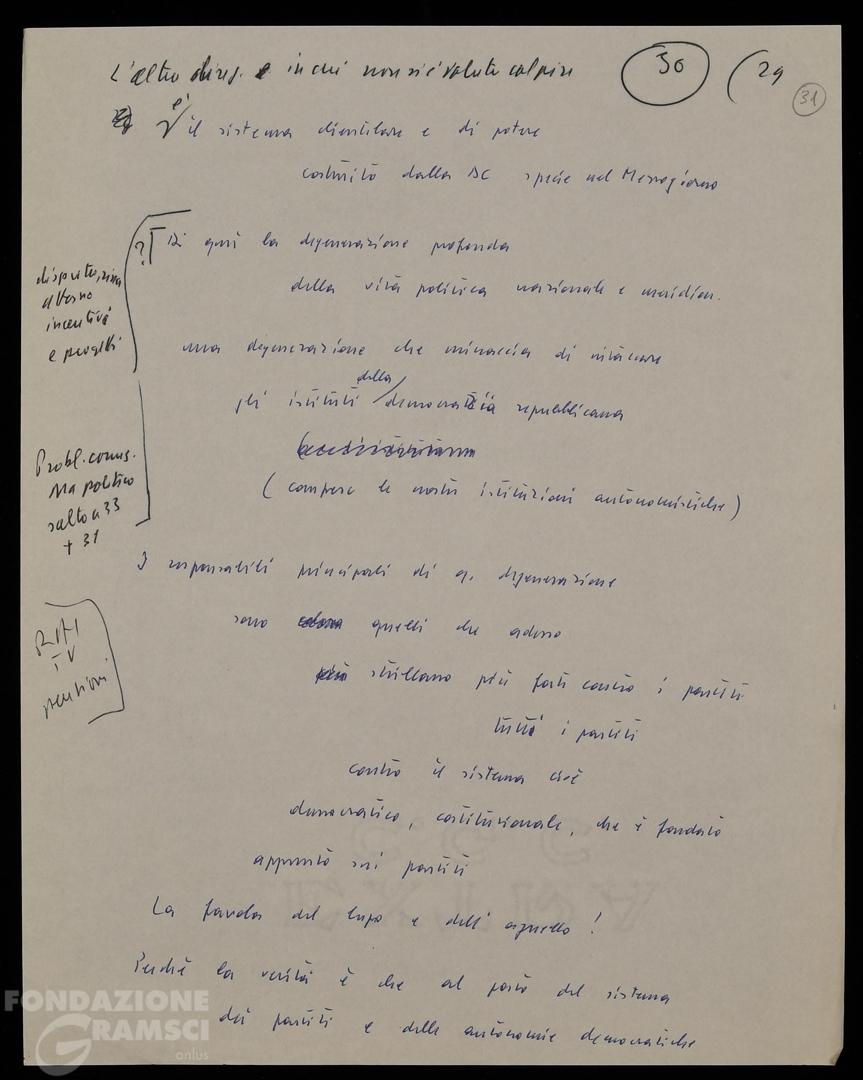 L'altra direz. in cui non si è voluto colpire
30
29
31
è il sistema clientelare e di potere
costruito dalla DC specie nel Mezzogiorno
?
Di qui la degenerazione profonda
della vita politica nazionale e meridion.
una degenerazione che minaccia di intaccare
gli istituti della democrazia repubblicana
(comprese le nostre istituzioni autonomistiche)
incentivi
e progetti
Probl. comus.
Ma politico
salto a 33
+ 31
I responsabili principali di q. degenerazione
sono quelli che adesso
strillano più forte contro i partiti
tutti i partiti
contro il sistema cioè
democratico, costituzionale, che è fondato
appunto sui partiti
TV
pensioni
La favola del lupo e dell'agnello!
Perché la verità è che al posto del sistema
dei partiti e delle autonomie democratiche
FONDAZIONE
GRAMSCI
onlus